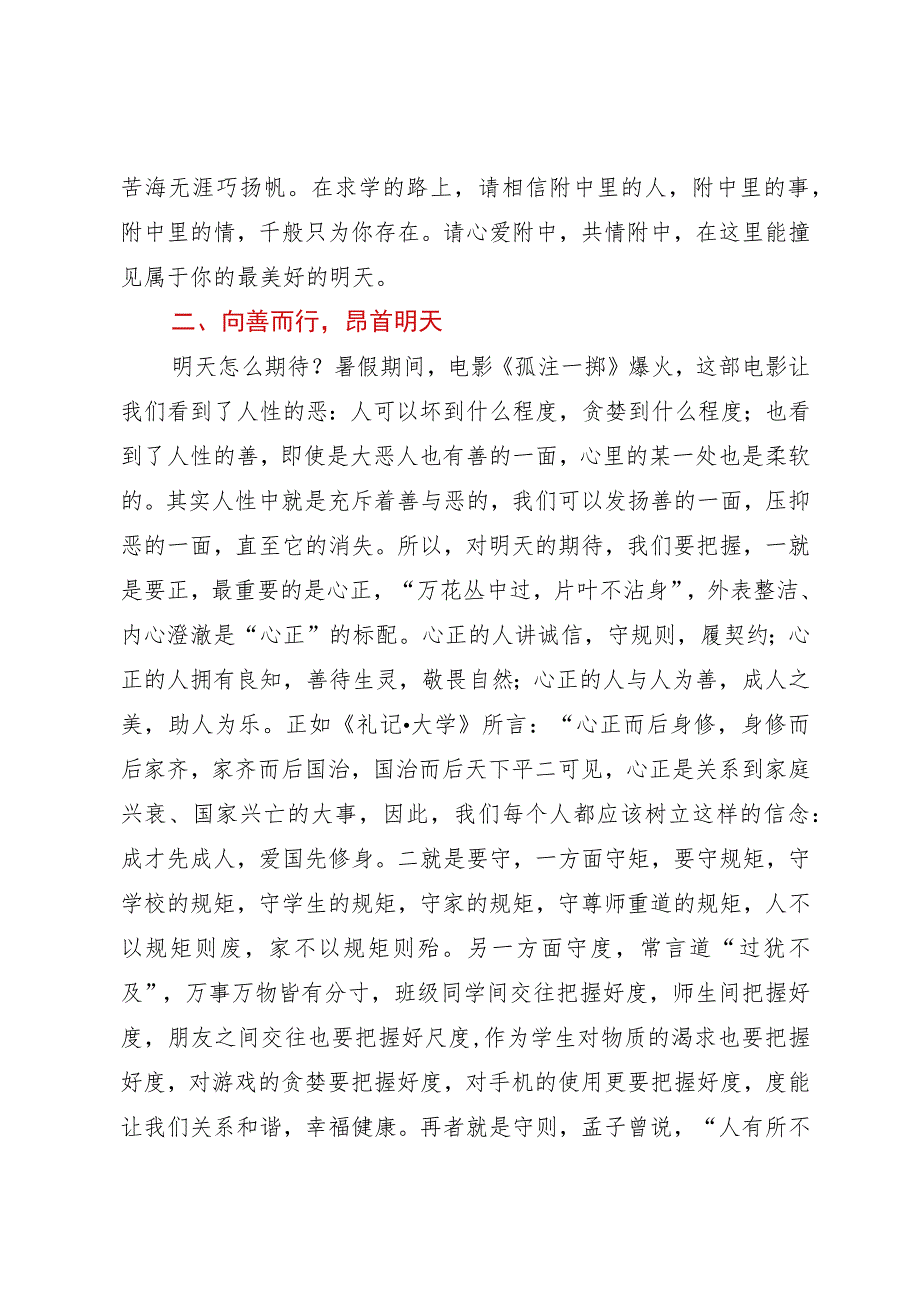 苦海无涯巧扬帆。在求学的路上，请相信附中里的人，附中里的事，
附中里的情，千般只为你存在。请心爱附中，共情附中，在这里能撞
见属于你的最美好的明天。
二、向善而行，昂首明天
明天怎么期待？暑假期间，电影《孤注一掷》爆火，这部电影让
我们看到了人性的恶：人可以坏到什么程度，贪婪到什么程度；也看
到了人性的善，即使是大恶人也有善的一面，心里的某一处也是柔软
的。其实人性中就是充斥着善与恶的，我们可以发扬善的一面，压抑
恶的一面，直至它的消失。所以，对明天的期待，我们要把握，一就
是要正，最重要的是心正，“万花丛中过，片叶不沾身”，外表整洁、
内心澄澈是“心正”的标配。心正的人讲诚信，守规则，履契约；心
正的人拥有良知，善待生灵，敬畏自然；心正的人与人为善，成人之
美，助人为乐。正如《礼记•大学》所言：“心正而后身修，身修而
后家齐，家齐而后国治，国治而后天下平二可见，心正是关系到家庭
兴衰、国家兴亡的大事，因此，我们每个人都应该树立这样的信念：
成才先成人，爱国先修身。二就是要守，一方面守矩，要守规矩，守
学校的规矩，守学生的规矩，守家的规矩，守尊师重道的规矩，人不
以规矩则废，家不以规矩则殆。另一方面守度，常言道“过犹不
及”，万事万物皆有分寸，班级同学间交往把握好度，师生间把握好
度，朋友之间交往也要把握好尺度,作为学生对物质的渴求也要把握
好度，对游戏的贪婪要把握好度，对手机的使用更要把握好度，度能
让我们关系和谐，幸福健康。再者就是守则，孟子曾说，“人有所不